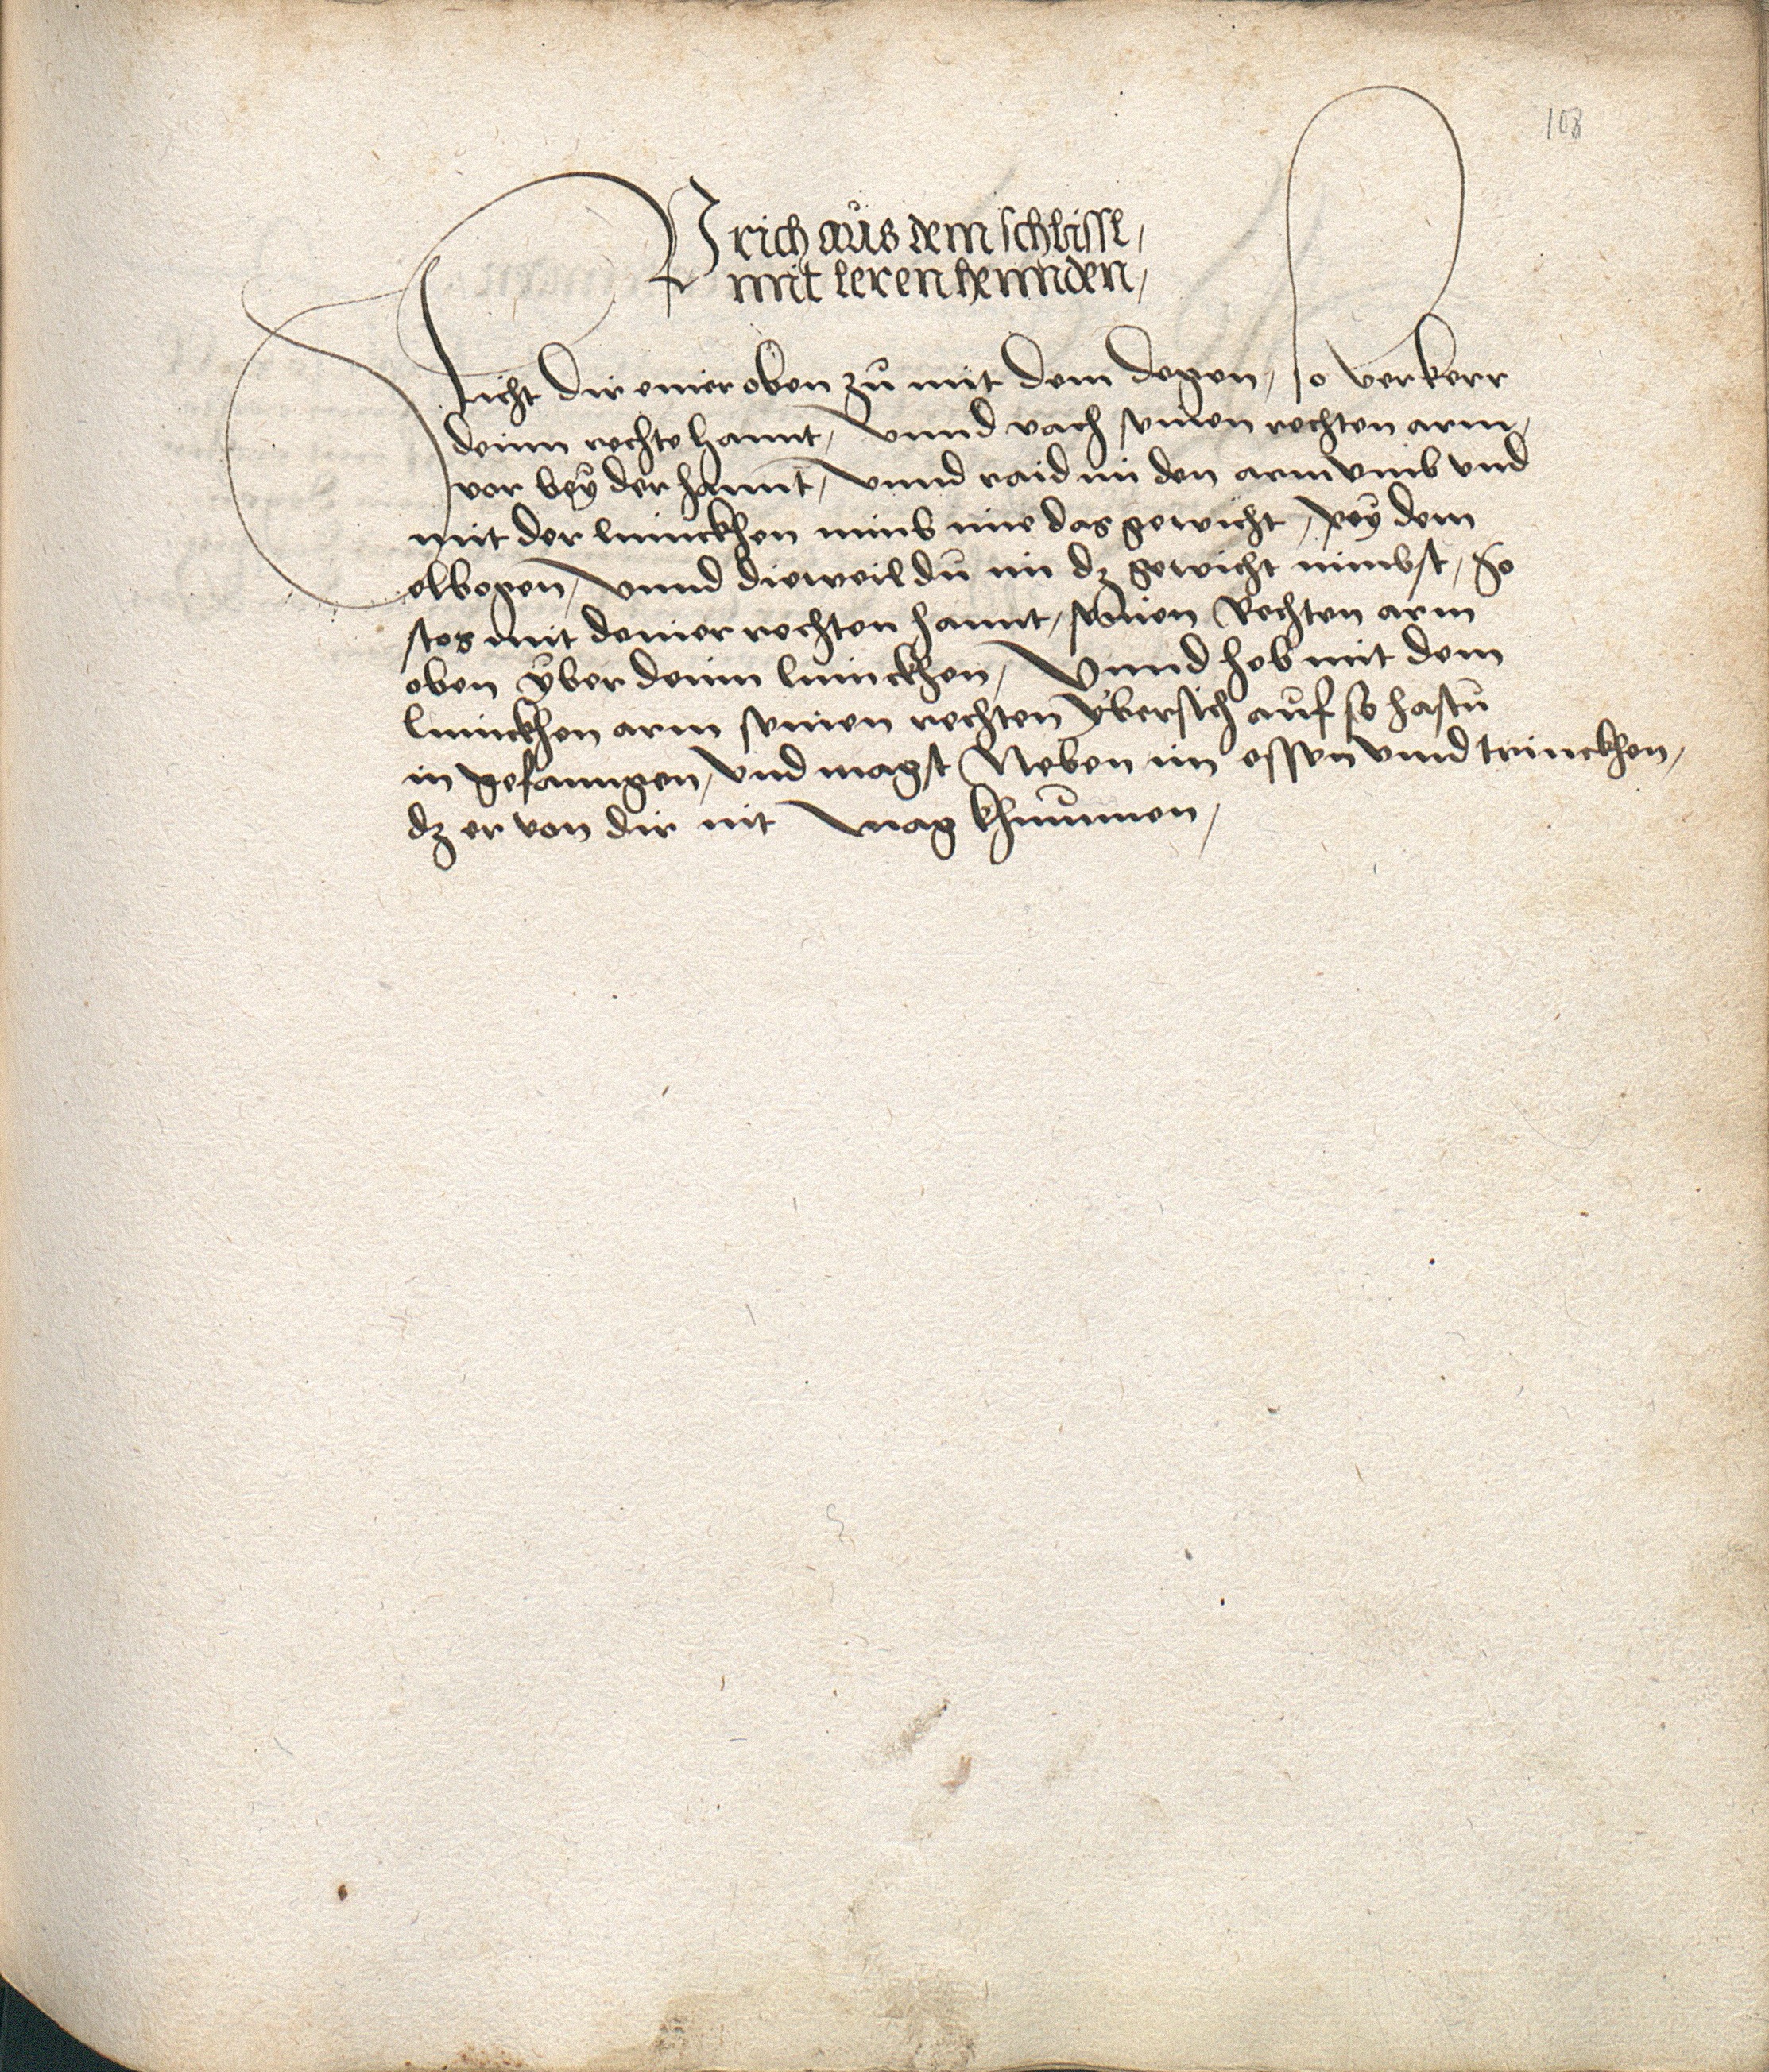 108
Prich aůs dem schlissl,
mit leren hennden,
Sticht dir einer oben zů mit dem degen, so verkerr
deinn rechte hannt, vnnd vach seinen rechten arm,
vor beÿ der hannt, vnnd raid im den arm vmb vnd
mit der linnckhen nimb ime das gewicht, peÿ dem
elbogen, vnnd dieweil dů im dz gewicht nimbst, So
stos mit deiner rechten hannt, seinen Rechten arm
oben ÿber deinn linnckhen, Vnnd heb mit dem
linnckhen arm seinen rechten ÿbersich aůf so hastů
in gefanngen, vnd magst Neben im essen vnnd trinckhen,
dz er von dir nit mag khůmmen,